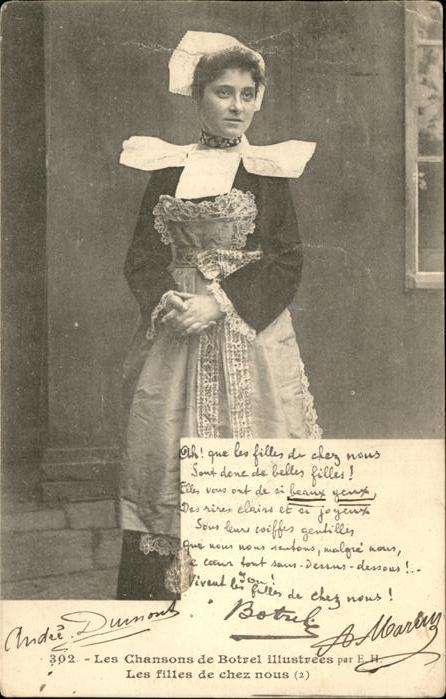 Ah! que les filles de chez nous
Sont donc de belles filles!
Elles vous ont de si beaux yeux,
Des rires clairs et si joyeux
Sous leurs coiffes gentilles
Que nous nous sentons, malgré nous,
Le cœur tout sans-dessus-dessous!..
Vivent les filles de chez nous!
Botrel
André Dumont
392 - Les Chansons de Botrel illustrées par E. H.
Les filles de chez nous (2)